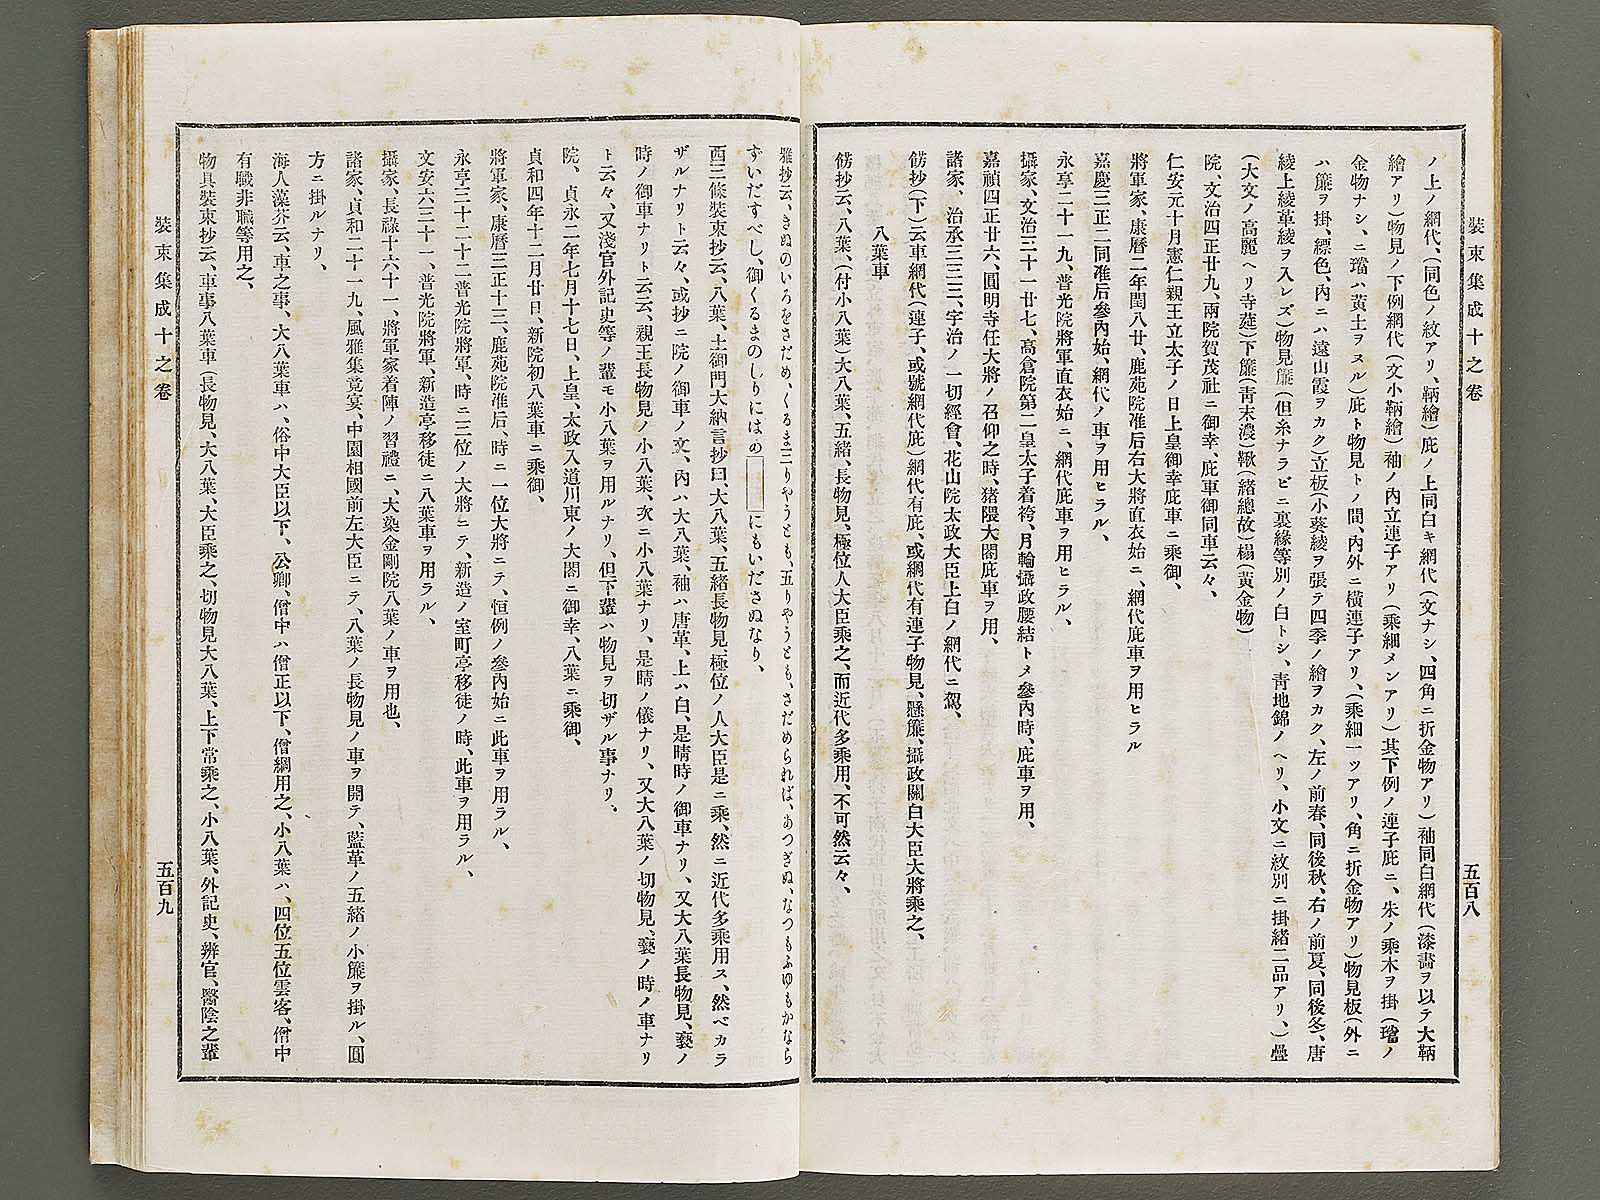 裝束集成十之卷
五百八
ノ上ノ網代、(同色ノ紋アリ、鞆繪)庇ノ上同白キ網代(文ナシ、四角ニ折金物アリ)袖同白網代(漆畵ヲ以テ大鞆
繪アリ)物見ノ下例網代(文小鞆繪)袖ノ內立連子アリ(乘細メンアリ)其下例ノ連子庇ニ、朱ノ乘木ヲ掛(璫ノ
金物ナシ、ニ璫ハ黃土ヲヌル)庇ト物見トノ間、內外ニ橫連子アリ、(乘細一ツアリ、角ニ折金物アリ)物見板(外ニ
ハ簾ヲ掛、縹色、內ニハ遠山霞ヲカク)立板(小葵綾ヲ張テ四季ノ繪ヲカク、左ノ前春、同後秋、右ノ前夏、同後冬)、唐
綾上綾革綾ヲ入レズ)物見簾(但糸ナラビニ裏緣等別ノ白トシ、靑地錦ノヘリ、小文ニ紋別ニ掛緖二品アリ、)疊
(大文ノ高麗ヘリ寺莚)下簾(靑末濃)鞦(緖總故)榻(黃金物)
院、文治四正廿九、兩院賀茂社ニ御幸、庇車御同車云々、
仁安元十月憲仁親王立太子ノ日上皇御幸庇車ニ乘御、
將軍家、康曆二年閏八廿、鹿苑院准后右大將直衣始ニ、網代庇車ヲ用ヒラル
嘉慶三正二同准后參內始、網代ノ車ヲ用ヒラル、
永享二十一九、普光院將軍直衣始ニ、網代庇車ヲ用ヒラル、
攝家、文治三十一廿七、高倉院第二皇太子着袴、月輪攝政腰結トメ參內時、庇車ヲ用、
嘉禎四正廿六、圓明寺任大將ノ召仰之時、猪隈大閤庇車ヲ用、
諸家、治承三三三、宇治ノ一切經會、花山院太政大臣上白ノ網代ニ駕、
餝抄(下)云車網代(連子、或號網代庇)網代有庇、或網代有連子物見、懸簾、攝政關白大臣大將乘之、
八葉車
餝抄云、八葉、(付小八葉)大八葉、五緖、長物見、極位人大臣乘之、而近代多乘用、不可然云々、
雅抄云、きぬのいろをさだめ、くるま三りやうとも、五りやうとも、さだめられば、あつぎぬ、なつもふゆもかなら
ずいだすべし、御くるまのしりにはの　　にもいださぬなり、
西三條裝束抄云、八葉、土御門大納言抄曰、大八葉、五緖長物見、極位ノ人大臣是ニ乘、然ニ近代多乘用ス、然ベカラ
ザルナリト云々、或抄ニ院ノ御車ノ文、內ハ大八葉、袖ハ唐革、上ハ白、是晴時ノ御車ナリ、又大八葉長物見、褻ノ
時ノ御車ナリト云云、親王長物見ノ小八葉、次ニ小八葉ナリ、是晴ノ儀ナリ、又大八葉ノ切物見、褻ノ時ノ車ナリ
ト云々、又淺官外記史等ノ輩モ小八葉ヲ用ルナリ、但下輩ハ物見ヲ切ザル事ナリ、
院、貞永二年七月十七日、上皇、太政入道川東ノ大閤ニ御幸、八葉ニ乘御、
貞和四年十二月廿日、新院初八葉車ニ乘御、
將軍家、康曆三正十三、鹿苑院准后、時ニ一位大將ニテ、恒例ノ參內始ニ此車ヲ用ラル、
永享三十二十二普光院將軍、時ニ三位ノ大將ニテ、新造ノ室町亭移徒ノ時、此車ヲ用ラル、
文安六三十一、普光院將軍、新造亭移徒ニ八葉車ヲ用ラル、
攝家、長祿十六十一、將軍家着陣ノ習禮ニ、大染金剛院八葉ノ車ヲ用也、
諸家、貞和二十一九、風雅集竟宴、中園相國前左大臣ニテ、八葉ノ長物見ノ車ヲ開テ、藍革ノ五緖ノ小簾ヲ掛ル、圓
方ニ掛ルナリ、
海人藻芥云、車之事、大八葉車ハ、俗中大臣以下、公卿、僧中ハ僧正以下、僧綱用之、小八葉ハ、四位五位雲客、僧中
有職非職等用之、
物具裝束抄云、車事八葉車(長物見、大八葉、大臣乘之、切物見大八葉、上下常乘之、小八葉、外記史、辨官、醫陰之輩
裝束集成十之卷
五百九